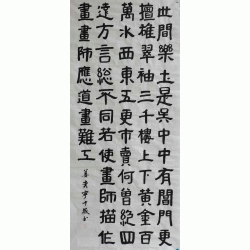 此間樂土是吳中中有閶門更
擅雄翠袖三千樓上下黃金百
萬水西東五更市賣何曾絕四
遠方言總不同若使畫師描作
畫畫師應道畫難工